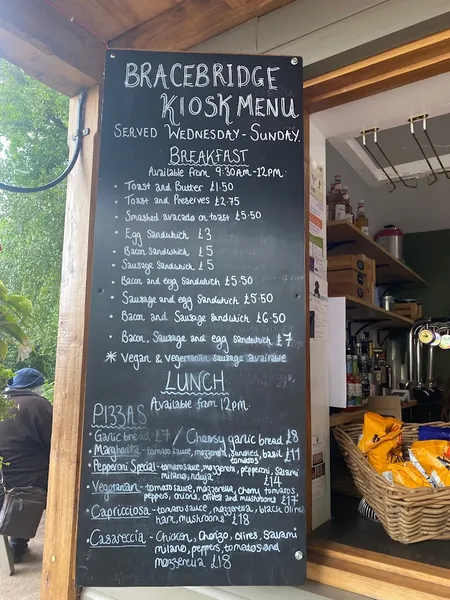 BRACEBRIDGE
KIOSK MENU
SERVED WEDNESDAY - SUNDAY.
BREAKFAST
Available from 9:30AM-12PM
• Toast and Butter £1.50
• Toast and Preserves £2.75
• Smashed avocado on toast £5.50
• Egg Sandwich £3
• Bacon Sandwich £5
• Sausage Sandwich £5
• Bacon and egg Sandwich £5.50
• Sausage and egg Sandwich £5.50
• Bacon and Sausage Sandwich £6.50
• Bacon, Sausage and egg Sandwich £7
* Vegan & vegetarian sausage available
LUNCH
Available from 12pm.
PIZZAS
• Garlic bread £7 / Cheesy garlic bread £8
• Margherita - tomato sauce, mozzarella, sundried tomatos, basil £11
• Pepperoni Special - tomato sauce, mozzarella, pepperoni, Salami
milano, nduja £14
• Vegetarian - tomato sauce, mozzarella, cherry tomatos
peppers, onions, olives and mushrooms £17
• Capricciosa - tomato sauce, mozzarella, black olives
ham, mushrooms £18
• Casareccia - Chicken, Chorizo, olives, Salami
milano, peppers, tomatos and
mozzerella £18